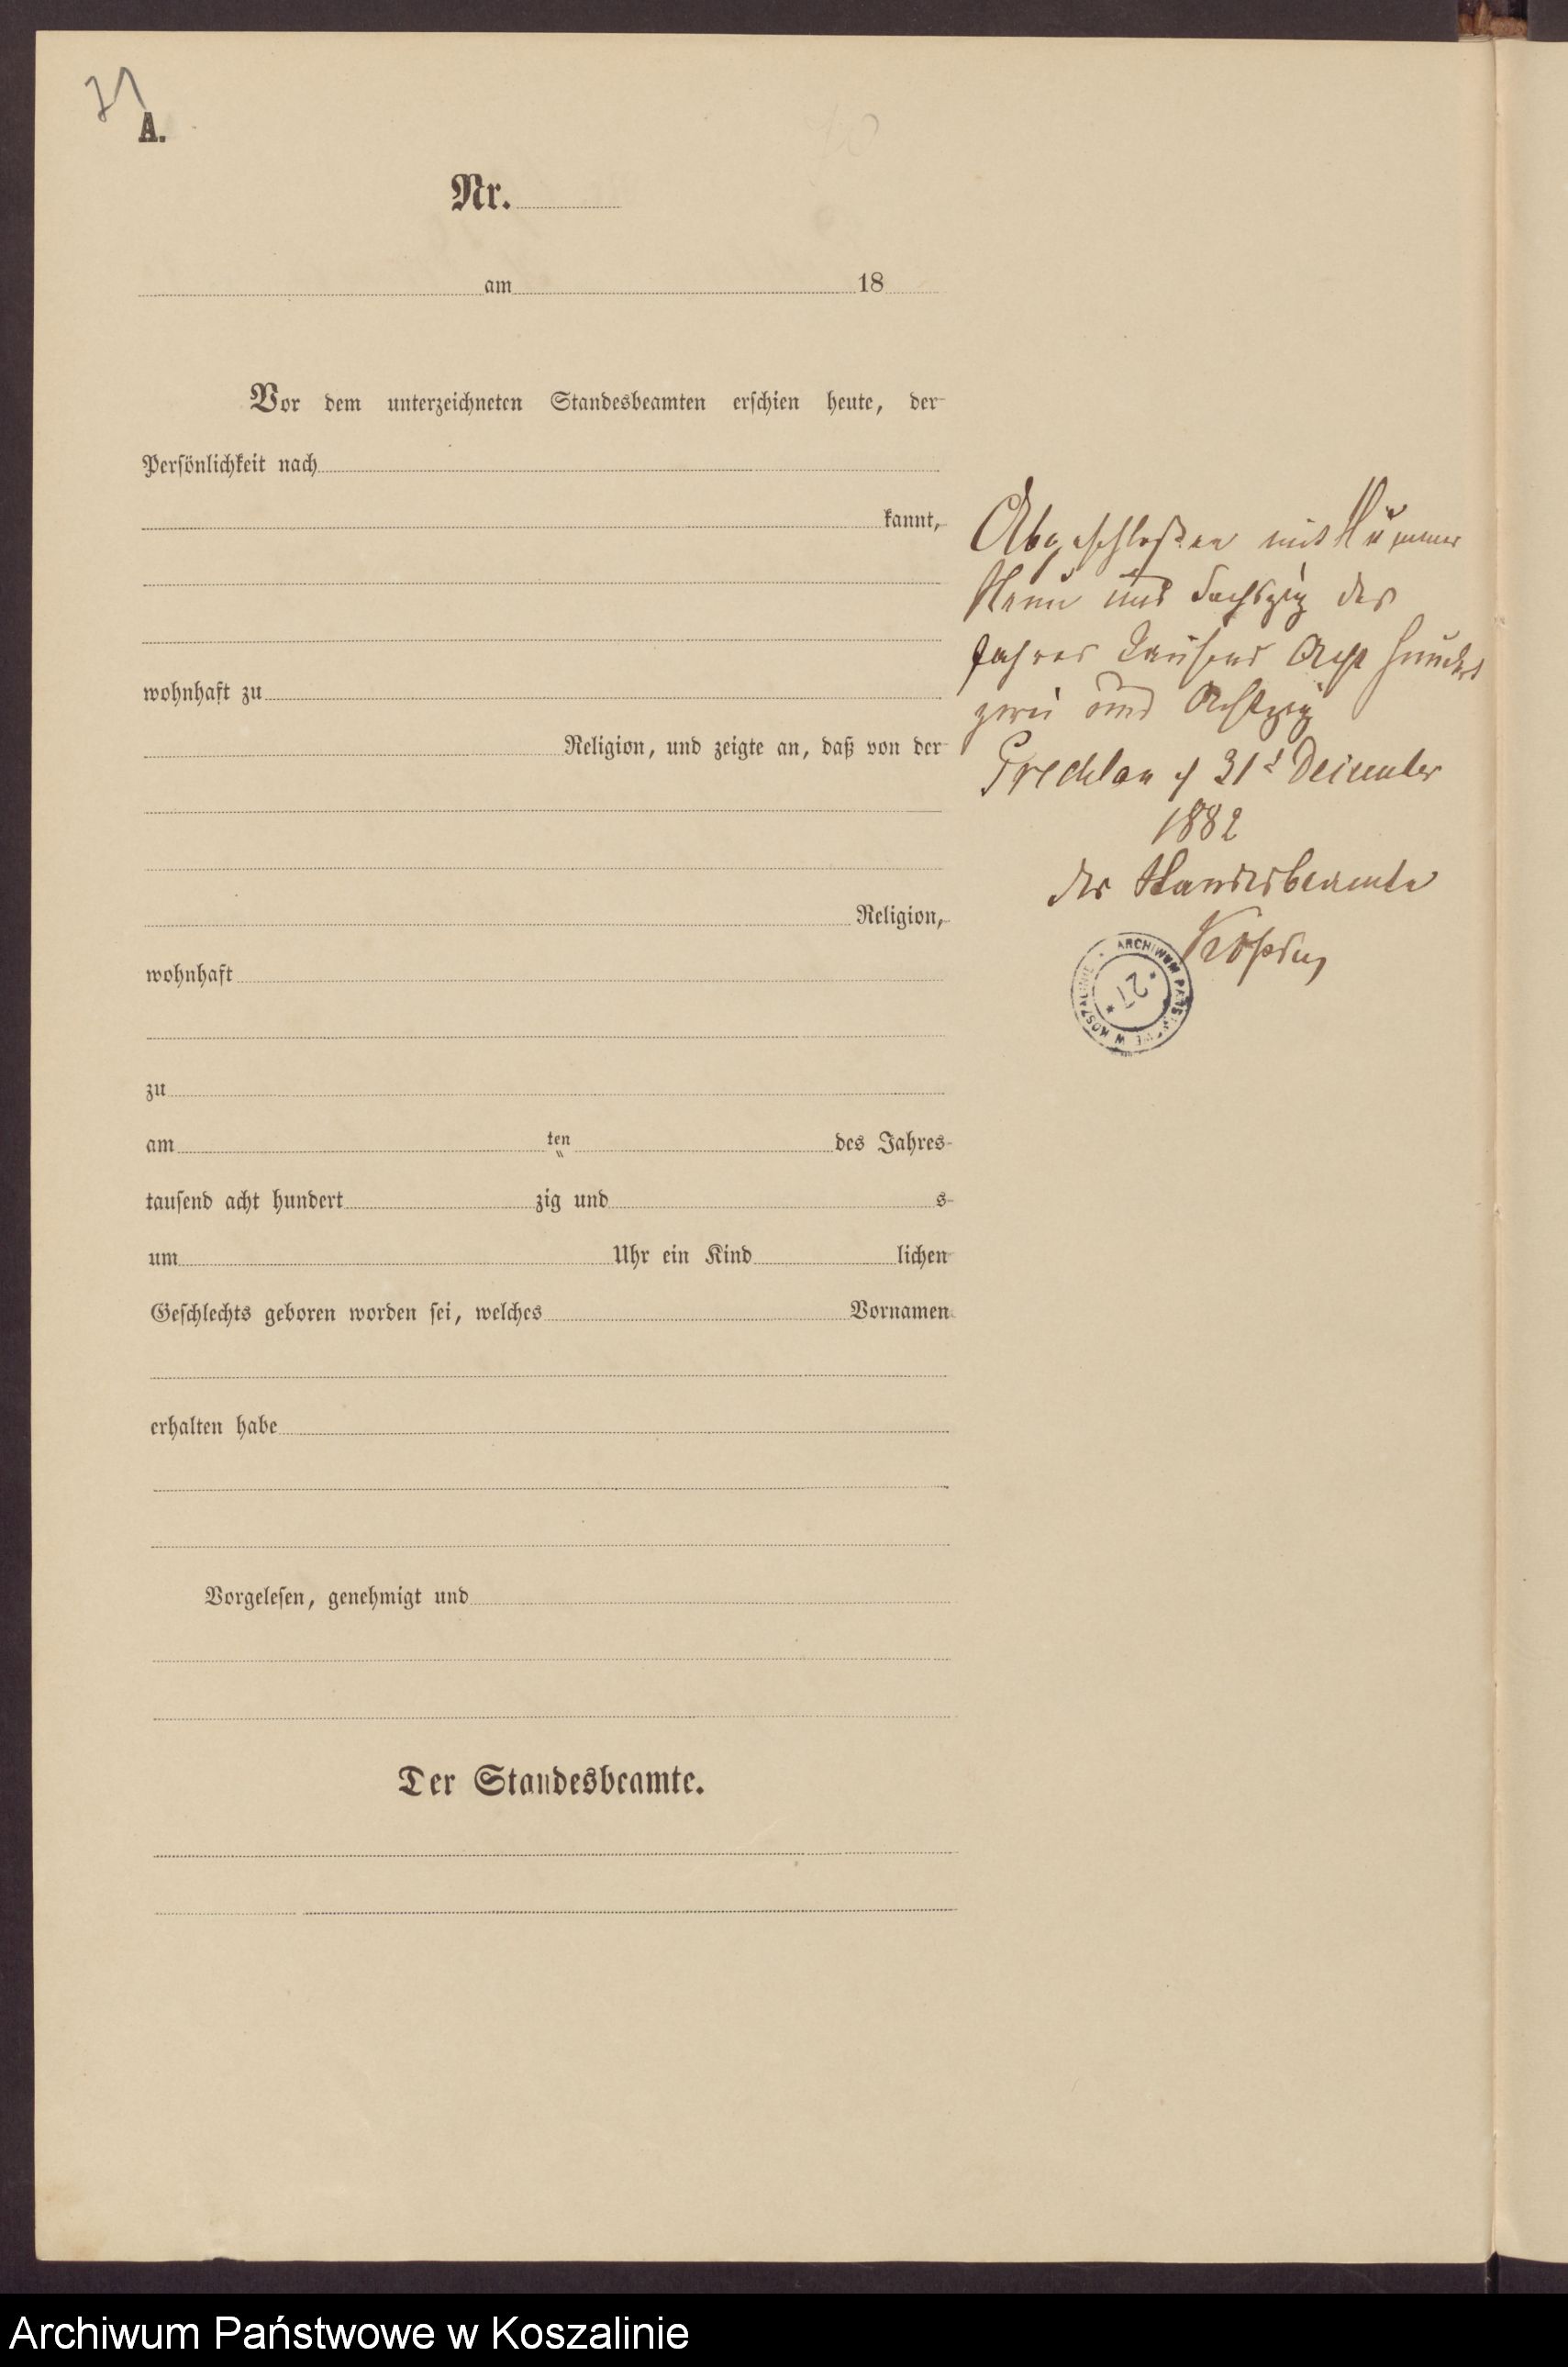 71
A.
Nr.
am 18
Vor dem unterzeichneten Standesbeamten erschien heute, der
Persönlichkeit nach
kannt,
wohnhaft zu
Religion, und zeigte an, daß von der
Religion,
wohnhaft
zu
am ten des Jahres
tausend acht hundert zig und s
um Uhr ein Kind lichen
Geschlechts geboren worden sei, welches Vornamen
erhalten habe
Vorgelesen, genehmigt und
Der Standesbeamte.
Abgeschloßen mit Nummer
Neun und Sechszig des
Jahres Tausend Acht hundert
zwei und Achtzig
Prechlau d 31t December
1882
der Standesbeamte
ARCHIWUM PAŃSTWOWE W KOSZALINIE
27
Archiwum Państwowe w Koszalinie